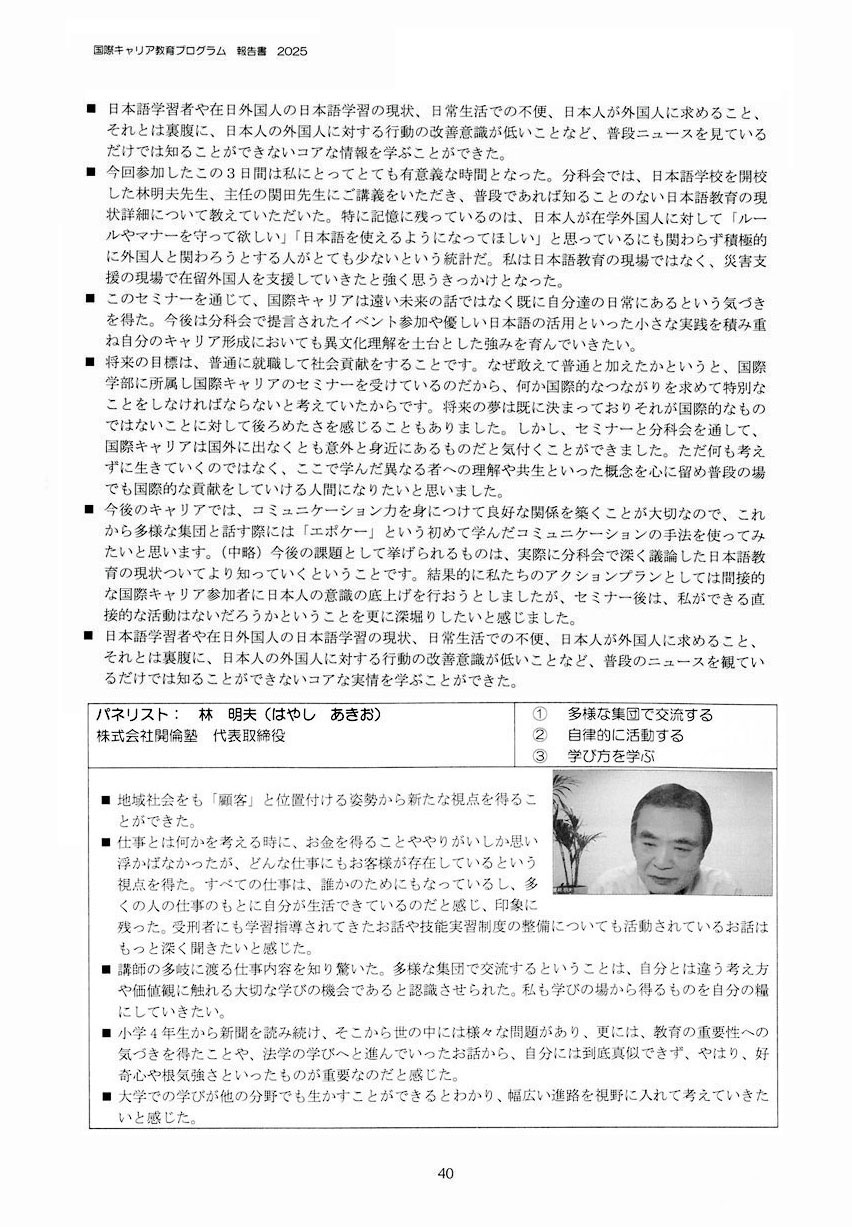 国際キャリア教育プログラム　報告書　2025
■ 日本語学習者や在日外国人の日本語学習の現状、日常生活での不便、日本人が外国人に求めること、
それとは裏腹に、日本人の外国人に対する行動の改善意識が低いことなど、普段ニュースを見ている
だけでは知ることができないコアな情報を学ぶことができた。
■ 今回参加したこの３日間は私にとってとても有意義な時間となった。分科会では、日本語学校を開校
した林明夫先生、主任の関田先生にご講義をいただき、普段であれば知ることのない日本語教育の現
状詳細について教えていただいた。特に記憶に残っているのは、日本人が在学外国人に対して「ルー
ルやマナーを守って欲しい」「日本語を使えるようになってほしい」と思っているにも関わらず積極的
に外国人と関わろうとする人がとても少ないという統計だ。私は日本語教育の現場ではなく、災害支
援の現場で在留外国人を支援していきたと強く思うきっかけとなった。
■ このセミナーを通じて、国際キャリアは遠い未来の話ではなく既に自分達の日常にあるという気づき
を得た。今後は分科会で提言されたイベント参加や優しい日本語の活用といった小さな実践を積み重
ね自分のキャリア形成においても異文化理解を土台とした強みを育んでいきたい。
■ 将来の目標は、普通に就職して社会貢献をすることです。なぜ敢えて普通と加えたかというと、国際
学部に所属し国際キャリアのセミナーを受けているのだから、何か国際的なつながりを求めて特別な
ことをしなければならないと考えていたからです。将来の夢は既に決まっておりそれが国際的なもの
ではないことに対して後ろめたさを感じることもありました。しかし、セミナーと分科会を通して、
国際キャリアは国外に出なくとも意外と身近にあるものだと気付くことができました。ただ何も考え
ずに生きていくのではなく、ここで学んだ異なる者への理解や共生といった概念を心に留め普段の場
でも国際的な貢献をしていける人間になりたいと思いました。
■ 今後のキャリアでは、コミュニケーション力を身につけて良好な関係を築くことが大切なので、これ
から多様な集団と話す際には「エポケー」という初めて学んだコミュニケーションの手法を使ってみ
たいと思います。（中略）今後の課題として挙げられるものは、実際に分科会で深く議論した日本語教
育の現状ついてより知っていくということです。結果的に私たちのアクションプランとしては間接的
な国際キャリア参加者に日本人の意識の底上げを行おうとしましたが、セミナー後は、私ができる直
接的な活動はないだろうかということを更に深堀りしたいと感じました。
■ 日本語学習者や在日外国人の日本語学習の現状、日常生活での不便、日本人が外国人に求めること、
それとは裏腹に、日本人の外国人に対する行動の改善意識が低いことなど、普段のニュースを観てい
るだけでは知ることができないコアな実情を学ぶことができた。
パネリスト：　林　明夫（はやし　あきお）
株式会社開倫塾　代表取締役
①　多様な集団で交流する
②　自律的に活動する
③　学び方を学ぶ
■ 地域社会をも「顧客」と位置付ける姿勢から新たな視点を得るこ
とができた。
■ 仕事とは何かを考える時に、お金を得ることややりがいしか思い
浮かばなかったが、どんな仕事にもお客様が存在しているという
視点を得た。すべての仕事は、誰かのためにもなっているし、多
くの人の仕事のもとに自分が生活できているのだと感じ、印象に
残った。受刑者にも学習指導されてきたお話や技能実習制度の整備についても活動されているお話は
もっと深く聞きたいと感じた。
■ 講師の多岐に渡る仕事内容を知り驚いた。多様な集団で交流するということは、自分とは違う考え方
や価値観に触れる大切な学びの機会であると認識させられた。私も学びの場から得るものを自分の糧
にしていきたい。
■ 小学４年生から新聞を読み続け、そこから世の中には様々な問題があり、更には、教育の重要性への
気づきを得たことや、法学の学びへと進んでいったお話から、自分には到底真似できず、やはり、好
奇心や根気強さといったものが重要なのだと感じた。
■ 大学での学びが他の分野でも生かすことができるとわかり、幅広い進路を視野に入れて考えていきた
いと感じた。
40